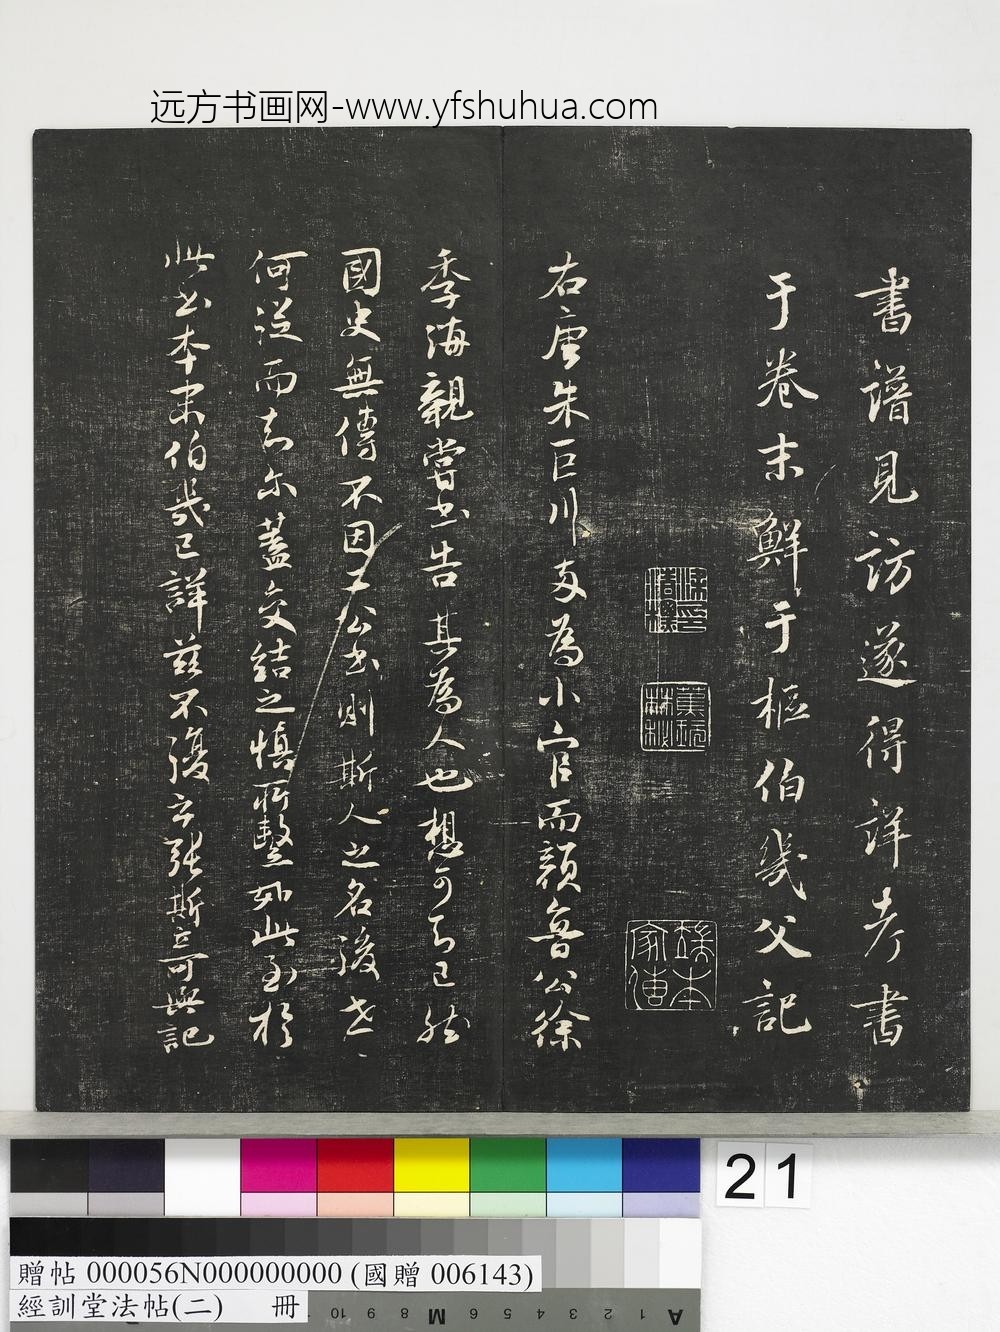 远方书画网-www.yfshuhua.com
書譜見訪遂得詳考書
于卷末鮮于樞伯幾父記
右唐朱巨川為小官而顏魯公徐
季海親嘗書告其為人也想可知已然
國史無傳不因二公書則斯人之名後世
何從而知尔蓋交結之慎所繫如此至於
此書本末伯幾已詳茲不復云張斯立可與記
21
贈帖 000056N000000000 (國贈 006143)
經訓堂法帖(二) 冊
10 9 8 M 6 5 4 3 2 1 A